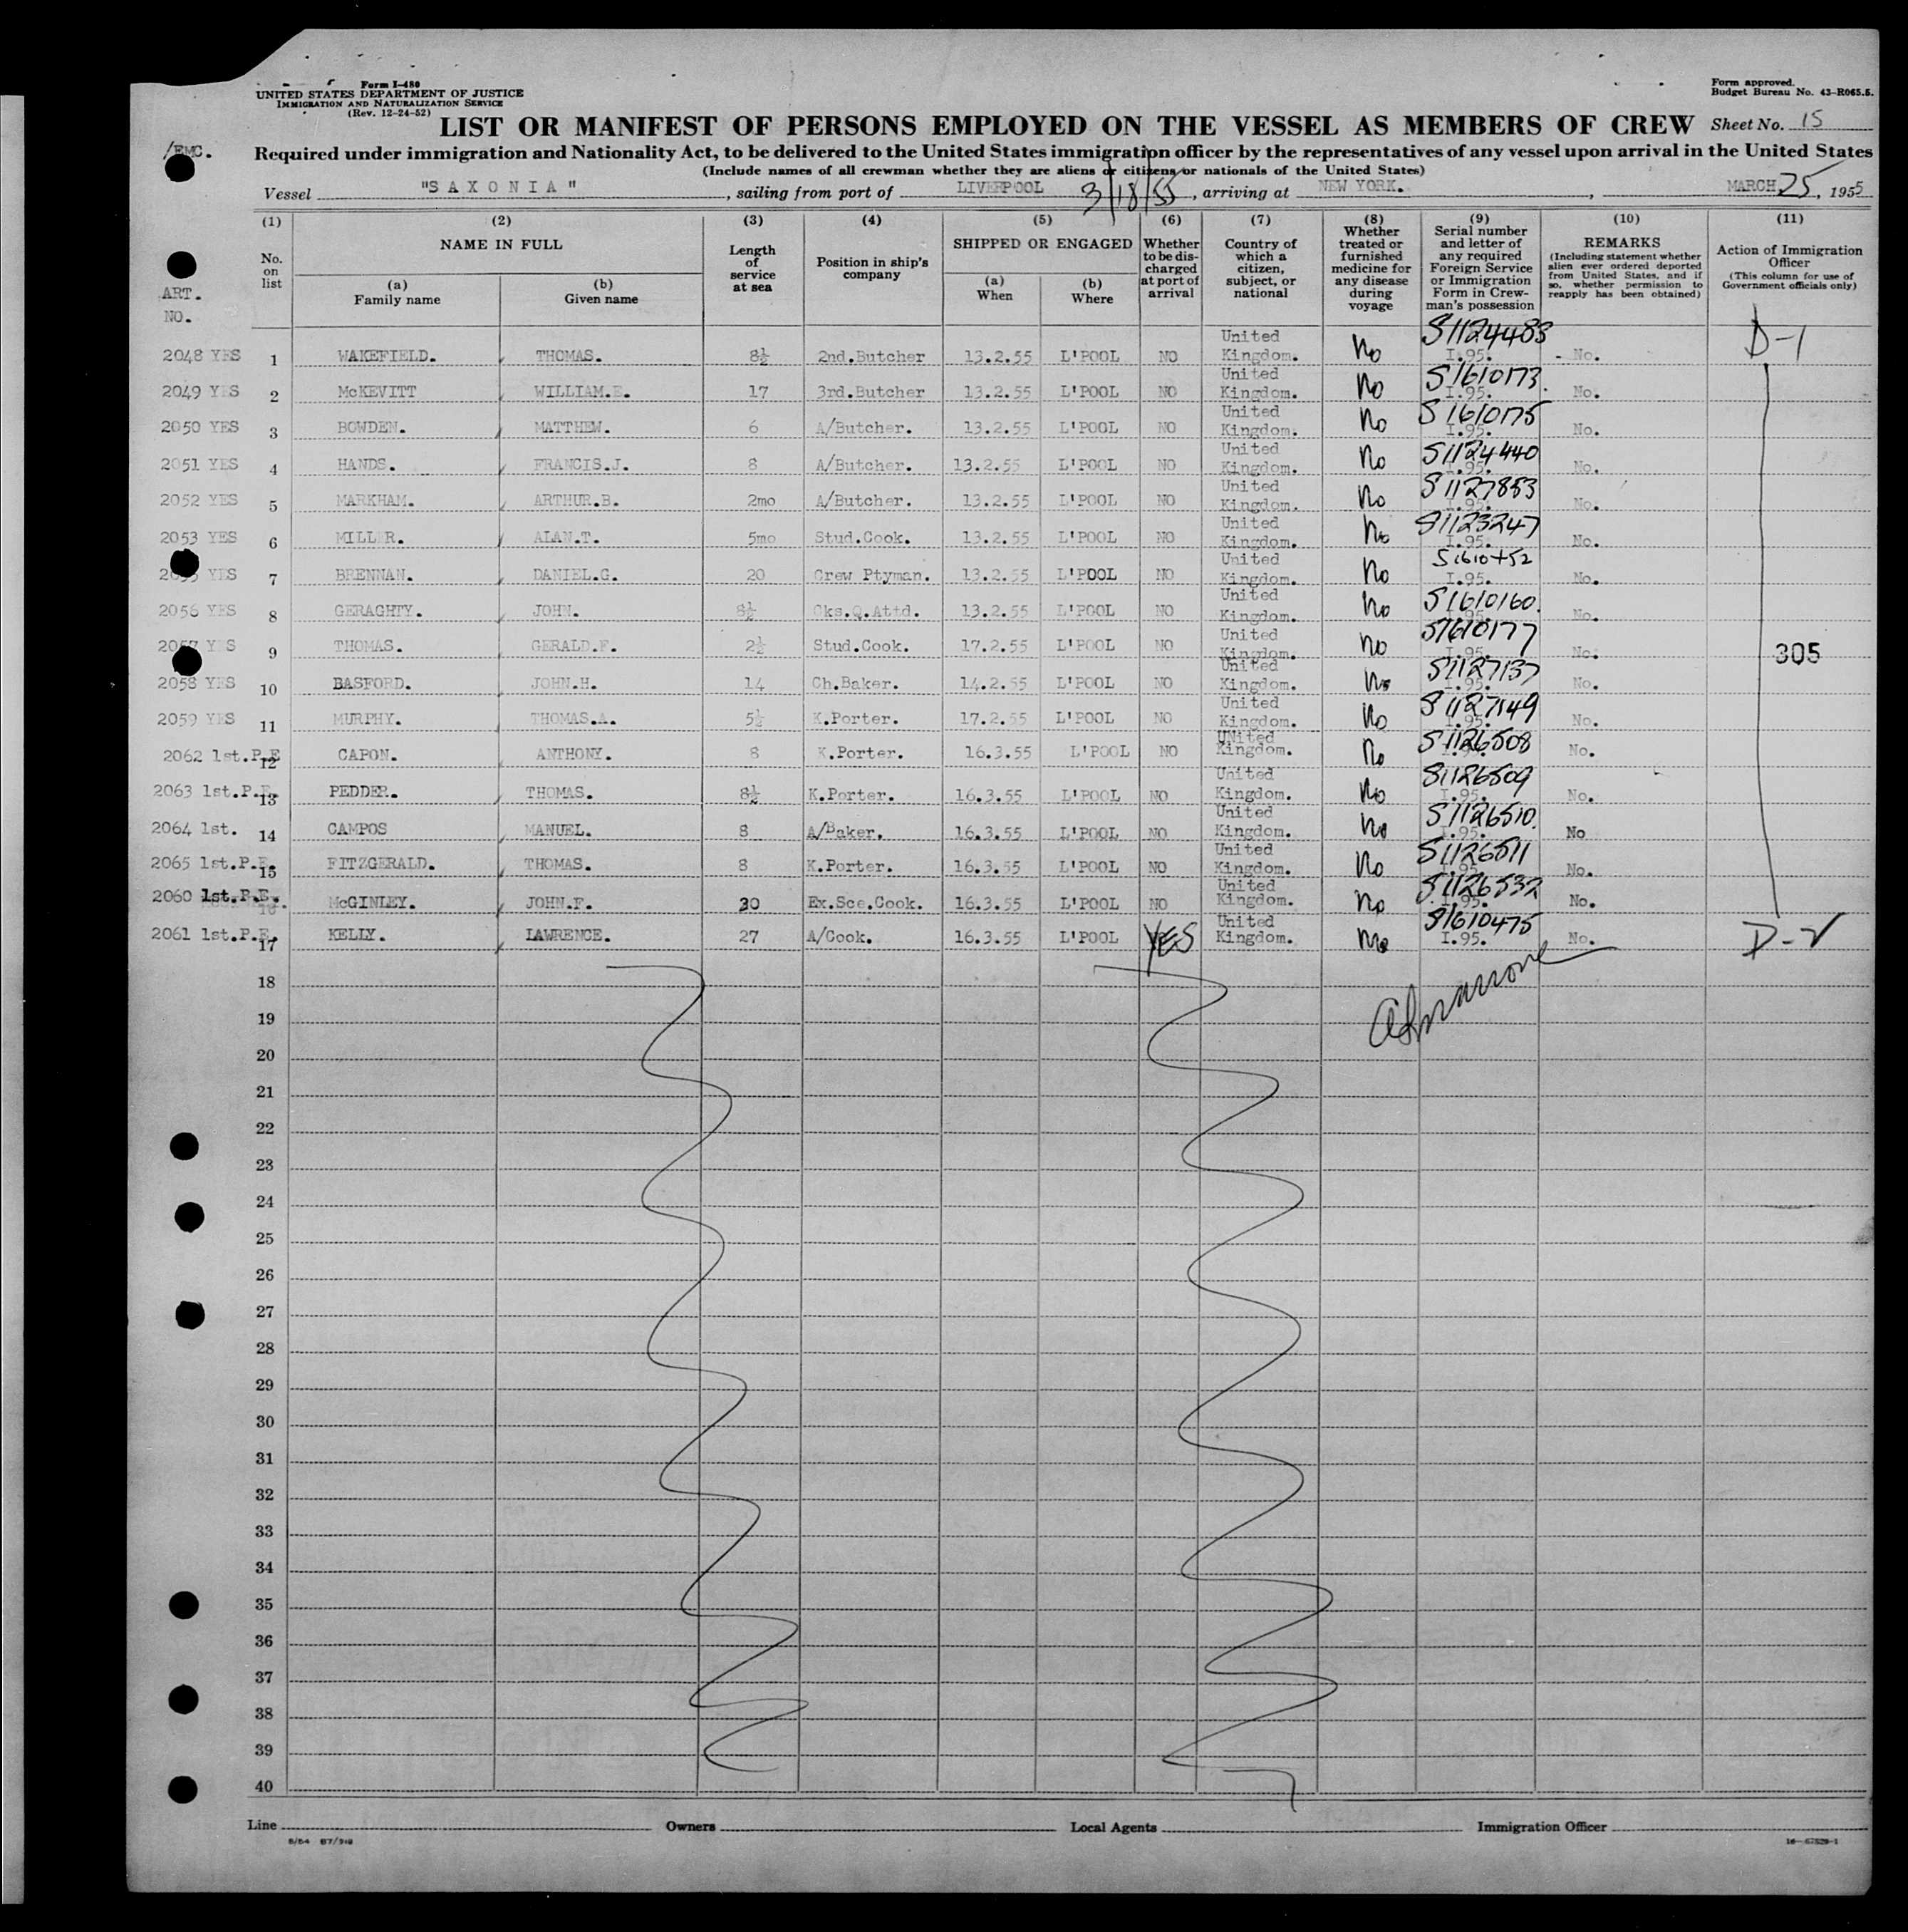 Form I-480
UNITED STATES DEPARTMENT OF JUSTICE
IMMIGRATION AND NATURALIZATION SERVICE
(Rev. 12-24-52)
Form approved.
Budget Bureau No. 43-R065.5.
LIST OR MANIFEST OF PERSONS EMPLOYED ON THE VESSEL AS MEMBERS OF CREW Sheet No. 15
/EMC.
Required under immigration and Nationality Act, to be delivered to the United States immigration officer by the representatives of any vessel upon arrival in the United States
(Include names of all crewman whether they are aliens or citizens or nationals of the United States)
Vessel "SAXONIA", sailing from port of LIVERPOOL 3/18/55, arriving at NEW YORK., MARCH 25, 1955
(1) (2) (3) (4) (5) (6) (7) (8) (9) (10) (11)
ART. NO.
No. on list
NAME IN FULL
(a) Family name
(b) Given name
Length of service at sea
Position in ship's company
SHIPPED OR ENGAGED
(a) When
(b) Where
Whether to be discharged at port of arrival
Country of which a citizen, subject, or national
Whether treated or furnished medicine for any disease during voyage
Serial number and letter of any required Foreign Service or Immigration Form in Crewman's possession
REMARKS
(Including statement whether alien ever ordered deported from United States, and if so, whether permission to reapply has been obtained)
Action of Immigration Officer
(This column for use of Government officials only)
2048 YES 1 WAKEFIELD. THOMAS. 8½ 2nd.Butcher 13.2.55 L'POOL NO United Kingdom. No S1124483 I.95. No. D-1
2049 YES 2 McKEVITT WILLIAM.E. 17 3rd.Butcher 13.2.55 L'POOL NO United Kingdom. No S1610173. I.95. No.
2050 YES 3 BOWDEN. MATTHEW. 6 A/Butcher. 13.2.55 L'POOL NO United Kingdom. No S1610175 I.95. No.
2051 YES 4 HANDS. FRANCIS.J. 8 A/Butcher. 13.2.55 L'POOL NO United Kingdom. No S1124440 I.95. No.
2052 YES 5 MARKHAM. ARTHUR.B. 2mo A/Butcher. 13.2.55 L'POOL NO United Kingdom. No S1127853 I.95. No.
2053 YES 6 MILLER. ALAN.T. 5mo Stud.Cook. 13.2.55 L'POOL NO United Kingdom. No S1123247 I.95. No.
YES 7 BRENNAN. DANIEL.G. 20 Crew Ptyman. 13.2.55 L'POOL NO United Kingdom. No I.95. No.
2056 YES 8 GERAGHTY. JOHN. 8½ Cks.Q.Attd. 13.2.55 L'POOL NO United Kingdom. No S1610160. I.95. No.
2057 YES 9 THOMAS. GERALD.F. 2½ Stud.Cook. 17.2.55 L'POOL NO United Kingdom. No S1610177 I.95. No. 305
2058 YES 10 BASFORD. JOHN.H. 14 Ch.Baker. 14.2.55 L'POOL NO United Kingdom. No S1127137 I.95. No.
2059 YES 11 MURPHY. THOMAS.A. 5½ K.Porter. 17.2.55 L'POOL NO United Kingdom. No S1127149 I.95. No.
2062 1st.P.E 12 CAPON. ANTHONY. 8 K.Porter. 16.3.55 L'POOL NO UNited Kingdom. No S1126508 No.
2063 1st.P.E. 13 PEDDER. THOMAS. 8½ K.Porter. 16.3.55 L'POOL NO United Kingdom. No S1126509 I.95. No.
2064 1st. 14 CAMPOS MANUEL. 8 A/Baker. 16.3.55 L'POOL NO United Kingdom. No S1126510. I.95. No
2065 1st.P.E. 15 FITZGERALD. THOMAS. 8 K.Porter. 16.3.55 L'POOL NO United Kingdom. No S1126511 I.95 No.
2060 1st.P.E. 16 McGINLEY. JOHN.F. 30 Ex.Sce.Cook. 16.3.55 L'POOL NO United Kingdom. No S1126532 I.95. No.
2061 1st.P.E. 17 KELLY. LAWRENCE. 27 A/Cook. 16.3.55 L'POOL YES United Kingdom. No S1610475 I.95. No. D-2
18
19
20
21
22
23
24
25
26
27
28
29
30
31
32
33
34
35
36
37
38
39
40
Line Owners Local Agents Immigration Officer
16—67529-1